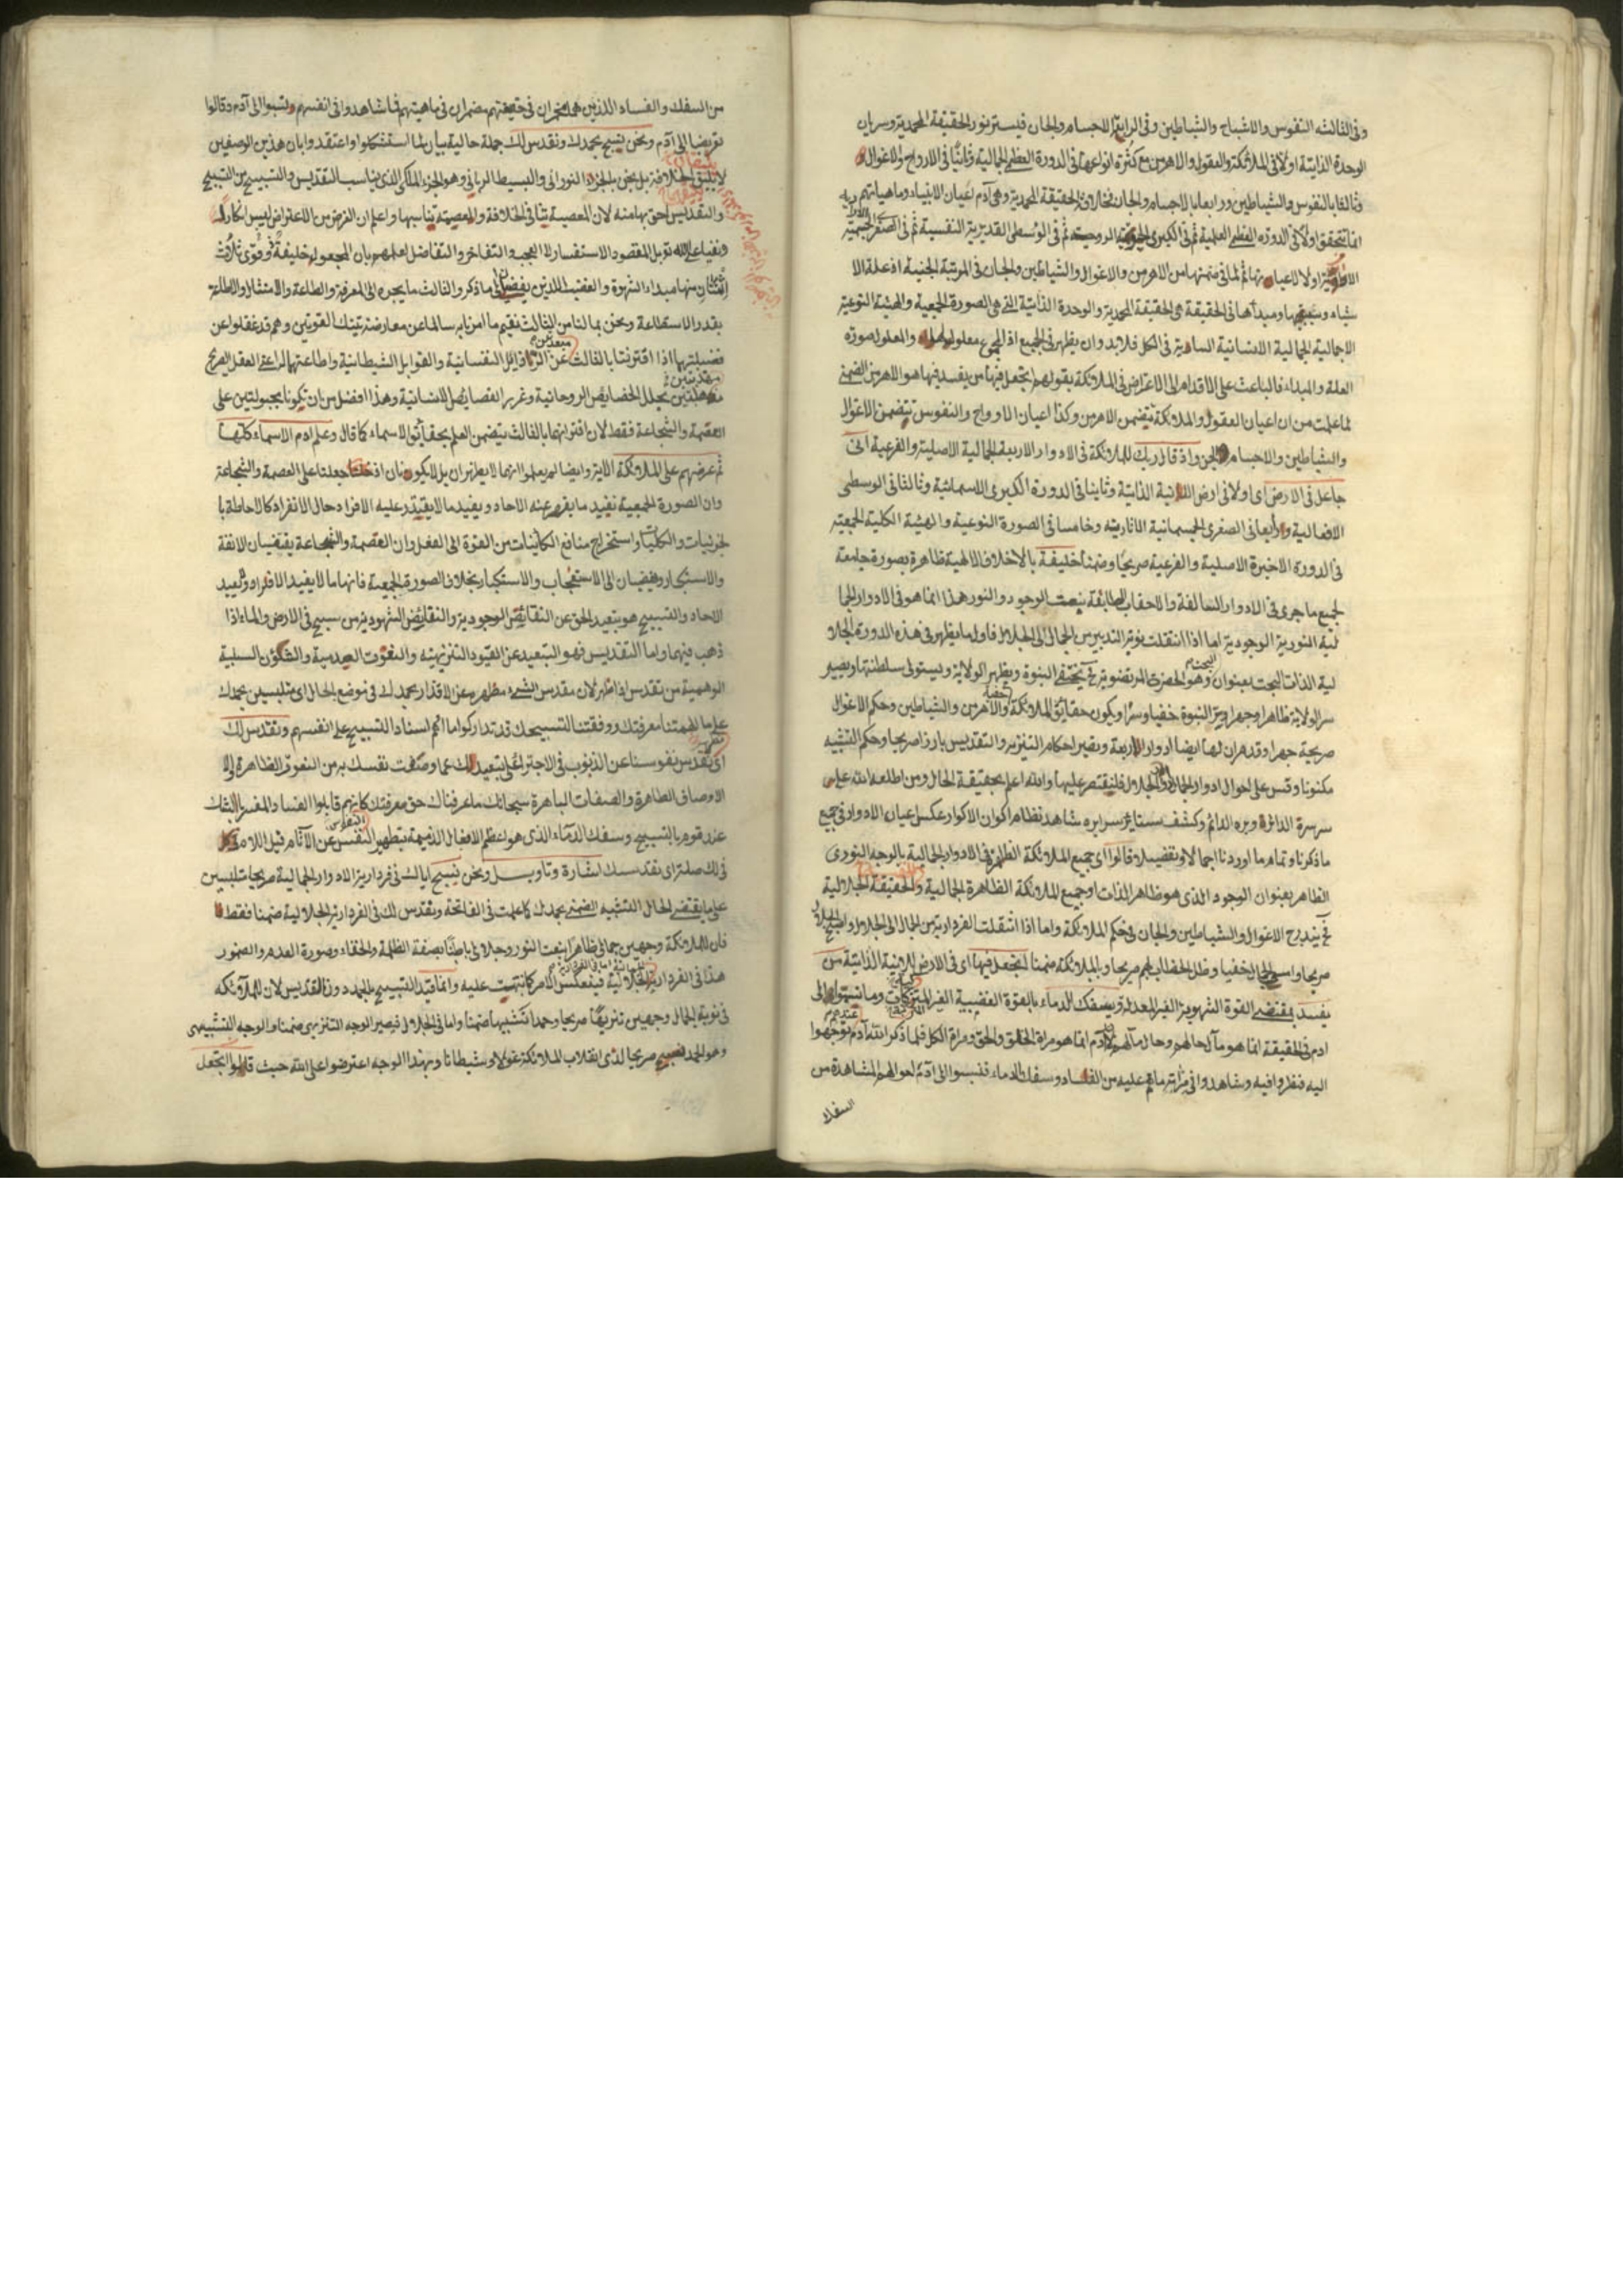 وفى الثالثه النفوس والاشباح والشياطين وفى الرابعة الاجسام والجان فيستر نور الحقيقة المحمدية وسريان
الوحدة الذاتية اولا فى الملائكة والعقول والاهرمن مع كثرة انواعها فى الدورة العظمى الجمالية وثانيا فى الارواح والاغوال
وثالثا بالنفوس والشياطين ورابعا بالاجسام والجان الحقيقة المحمدية وهى آدم اعيان الانبياء وماهياتهم
انما تتحقق اولا فى الدورة العظمى العلمية ثم فى الكبرى الروحية ثم فى الوسطى القديرية النفسية ثم فى الصغرى الجسمية
اولا لما فى ضمنها من الاهرمن والاغوال والشياطين والجان فى المرتبة الجنية اذ علة الا
شياء ومبدأها فى الحقيقة هى الحقيقة المحمدية والوحدة الذاتية التى هى الصورة الجمعية والهيئة النوعية
الاجمالية الجمالية الانسانية السارية فى الكل فلابد وان يظهر فى الجميع اذ الجميع معلول والمعلول صورة
العلة والمبداء فالباعث على الاقدام الى الاعتراض فى الملائكة بقولهم اتجعل فيها من يفسد فيها هو الاهرمن الضمنى
لما علمت من ان اعيان العقول والملائكة يتضمن الاهرمن وكذا اعيان الارواح والنفوس يتضمن الاغوال
والشياطين والاجسام الجن واذ قال ربك للملائكة فى الادوار الاربعة الجمالية الاصلية والفرعية انى
جاعل فى الارض اى اولا فى ارض الذاتية وثانيا فى الدورة الكبرى الاسمائية وثالثا فى الوسطى
الافعالية ورابعا فى الصغرى الجسمانية الاثارية وخامسا فى الصورة النوعية والهيئة الكلية الجمعية
فى الدورة الاخيرة الاصلية والفرعية صريحا وضمنا خليفة بالاخلاق الالهية ظاهرة بصورة جامعة
لجميع ما جرى فى الادوار السالفة والاحقاب السابقة بنعت الوجود والنور هذا انما هو فى الادوار الجما
لية النورية الوجودية اما اذا انتقلت نوبة التدبير من الجمال الى الجلال فاول ما يظهر فى هذه الدورة الجلا
لية الذات البحت بعنوان وهو الحضرة المرتضوية يختفى النبوة ويظهر الولاية ويستولى سلطنتها ويصير
سر الولاية ظاهرا وجهرا وسر النبوة خفيا وسرا ويكون حقائق الملائكة والاهرمن والشياطين وحكم الاغوال
صريحة جهرا وقد هران لها ايضا ادوار اربعة ويصير احكام التنزيه والتقديس بارزا صريحا وحكم التشبيه
مكنونا وقس على احوال ادوار الجمال والجلال فليقتصر عليها والله اعلم بحقيقة الحال ومن اطلعه الله على
شاهد نظام اكوان الاكوار عكس اعيان الادوار فى جميع
ما ذكرنا وتمام ما اوردنا اجمالا وتفصيلا قالوا اى جميع الملائكة الظاهرة فى الادوار الجمالية بالوجه النورى
الظاهر بعنوان الوجود الذى هو ظاهر الذات وجميع الملائكة الظاهرة الجمالية والحقيقة الجلالية
يندرج الاغوال والشياطين والجان فى حكم الملائكة واما اذا انتقلت الفردارية من الجمال الى الجلال
صريحا خفيا وظل الخطاب لهم صريحا وبالملائكة ضمنا اتجعل فيها اى فى الارض الذاتية من
يفسد بمقتضى القوة الشهوية الغير المعدلة ويسفك الدماء بالقوة الغضبية الغير الى
ادم فى الحقيقة انما هو مآل حالهم وحال مآلهم لان آدم انما هو مرآة الخالق والحق ومرآة الكل فلما ذكر الله آدم توجهوا
اليه فنظروا فيه وشاهدوا فى مرآته ما هم عليه من الفساد وسفك الدماء فنسبوا الى آدم احوالهم المشاهدة من
السفك
من السفك والفساد اللذين هما فى حقيقتهم مضمران فى ماهيتهم فما شاهدوا فى انفسهم ونسبوا الى آدم وقالوا
تعريضا الى آدم ونحن نسبح بحمدك ونقدس لك جملة حالية بيان لما استشكلوا واعتقدوا بان هذين الوصفين
لا يليق الخلافة بل نحن بالجزء النورانى والبسيط الربانى وهو الجزء الملكى الذى يناسب التقديس والتسبيح من التسبيح
والتقديس احق بها منه لان المعصية تنافى الخلافة والعصمة تناسبها واعلم ان الغرض من الاعتراض ليس انكارا
ونفيا على الله تعالى بل المقصود الاستفسار لا العجب والتفاخر والتفاضل لعلمهم بان المجعول خليفة ذو قوى ثلاث
اثنتان منها مبداء الشهوة والغضب اللذين يفضيان الى ما ذكر والثالث ما يجره الى المعرفة والطاعة والامتثال والاطاعة
بقدر الاستطاعة ونحن بما لنا من الثالث نقيم ما امرنا به سالما عن معارضة تينك القوتين وهم قد غفلوا عن
فضيلتهما اذا اقترنتا بالثالث عن الرذايل النفسانية والقوابل الشيطانية واطاعتهما لراعى العقل الصريح
بحلل الخصايص الروحانية وغرر الخصايص الانسانية وهذا افضل من ان تكونا مجبولتين على
العصمة والشجاعة فقط لان اقترانهما بالثالث يتضمن العلم بحقائق الاسماء كما قال وعلم ادم الاسماء كلها
ثم عرضهم على الملائكة الاية وايضا لم يعلموا انهما لا يظهران بل لا يكونان اذ جعلتا على العصمة والشجاعة
وان الصورة الجمعية تفيد ما يقصر عنه الاحاد ويفيد ما لا يقتدر عليه الافراد حال الانفراد كالاحاطة با
لجزئيات والكليات واستخراج منافع الكائنات من القوة الى الفعل وان العصمة والشجاعة يقتضيان الانفة
والاستكبار ويفضيان الى الاستعجاب والاستكبار بخلاف الصورة الجمعية فانها ما لا يفيد الافراد وتبعيد
الاحاد والتسبيح هو تبعيد الحق عن النقايص الوجودية والنقايص الشهودية من سبح فى الارض والماء اذا
ذهب فيهما واما التقديس فهو التبعيد عن القيود التنزيهية والنعوت العدمية والشئون السلبية
الوهمية من تقدس اذا طهر لان مقدس الشىء مطهره عن الاقذار وبحمدك فى موضع الحال اى متلبسين بحمدك
على ما الهمتنا معرفتك ووفقتنا لتسبيحك قد تداركوا ما اثم اسناد التسبيح على انفسهم ونقدس لك
اى نقدس نفوسنا عن الذنوب لك عما وصفت نفسك به من النعوت الظاهرة الا
الاوصاف الطاهرة والصفات الباهرة سبحانك ما عرفناك حق معرفتك كانهم قابلوا الفساد المفسر بالشك
عند قوم بالتسبيح وسفك الدماء الذى هو اعظم الافعال الذميمة بتطهير النفس عن الآثام قيل اللام
فى لك صلة اى نقدسك اشارة وتاويل ونحن نسبح اياك فى فردارية الادوار الجمالية صريحا متلبسين
على ما يقتضى الحال التشبيه الضمنى بحمدك كما علمت فى الفاتحة ونقدس لك فى الفردارية الجلالية ضمنا فقط
فان للملائكة وجهين جمالى ظاهرا بنعت النور وجلالى باطنا بصفة الظلمة والخفاء وصورة العدم والضمور
هذا فى الفردارية الجلالية فينعكس الامر كما نبهت عليه وانما قيد التسبيح بالحمد دون التقديس لان للملائكة
فى نوبة الجمال وجهين تنزيها صريحا وحمدا تشبيها ضمنا واما فى الجلال فيصير الوجه التنزيهى ضمنا والوجه التشبيهى
وهو الحمد صريحا لدى انقلاب الملائكة غولا وشيطانا وبهذا الوجه اعترضوا على الله حيث قالوا اتجعل